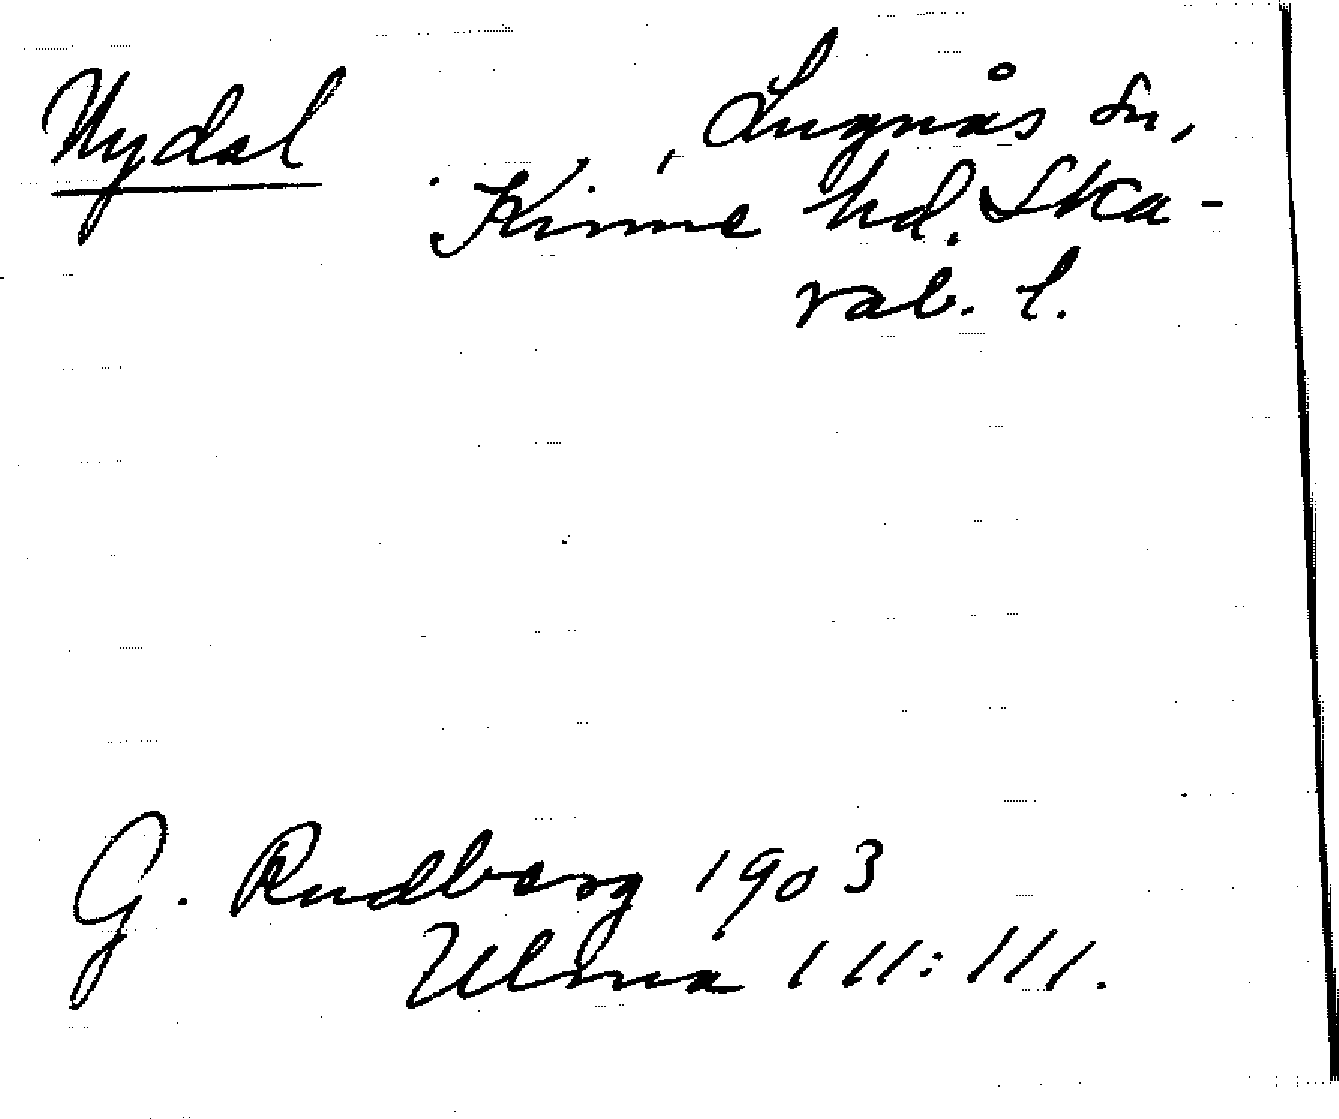 Nydal , Lugnås sn,
Kinne hd. Ska-
rab. l.
G. Rudberg 1903
Ulma 111:111.